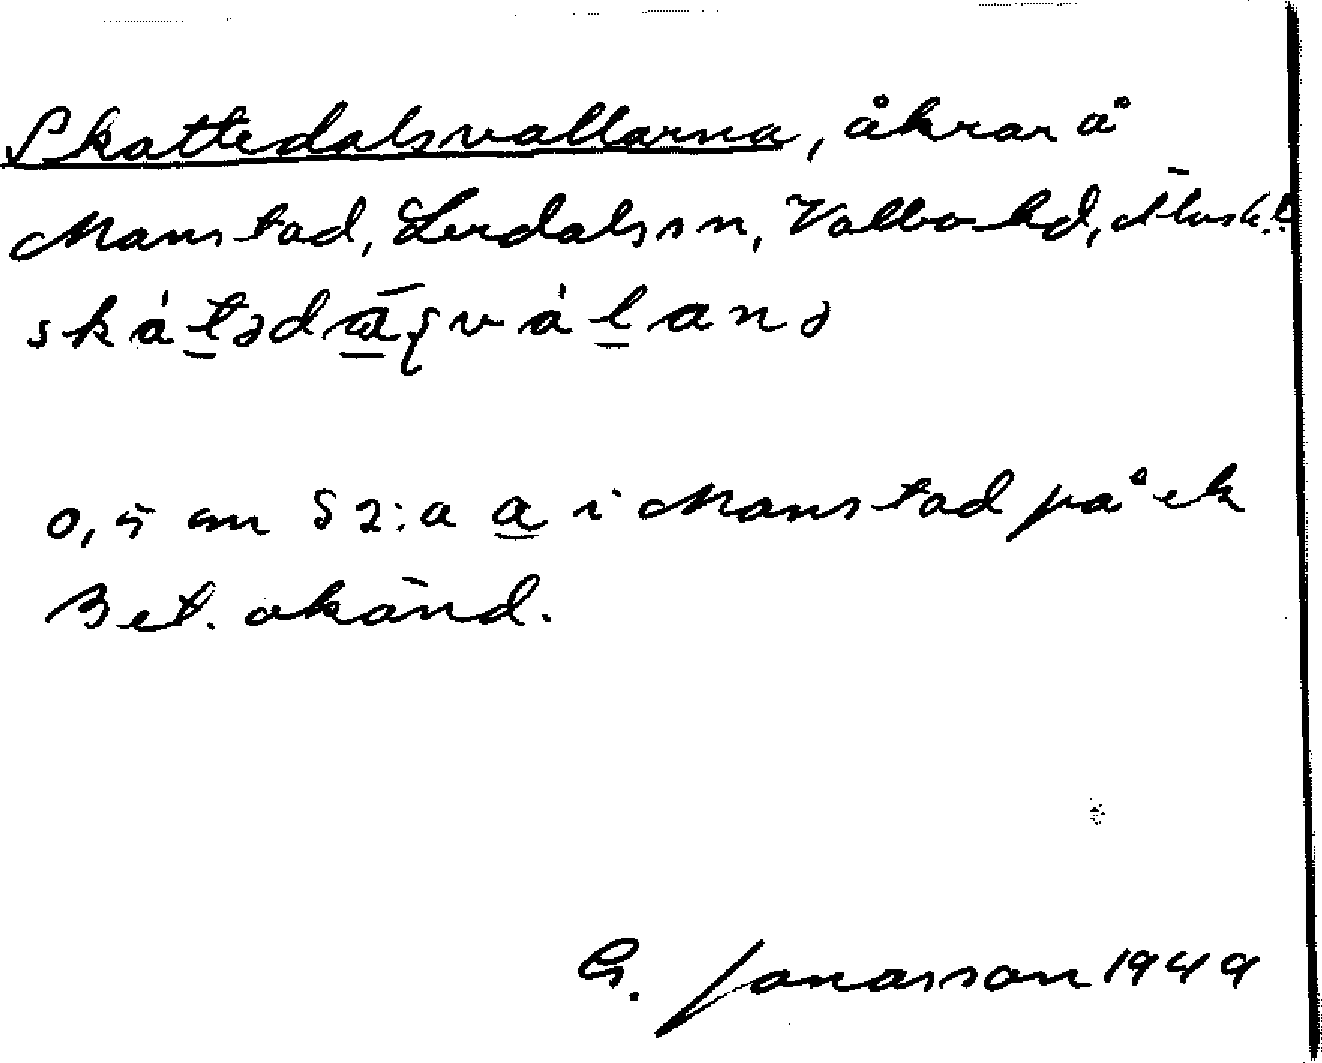 Skattedalsvallarna, åkrar å
Manstad, Lerdals sn, Valbo hd, Älvsb.
skátədāʂválanə
0,5 cm S 2:a a i Manstad på ek
Bet. okänd.
G. Jonasson 1949